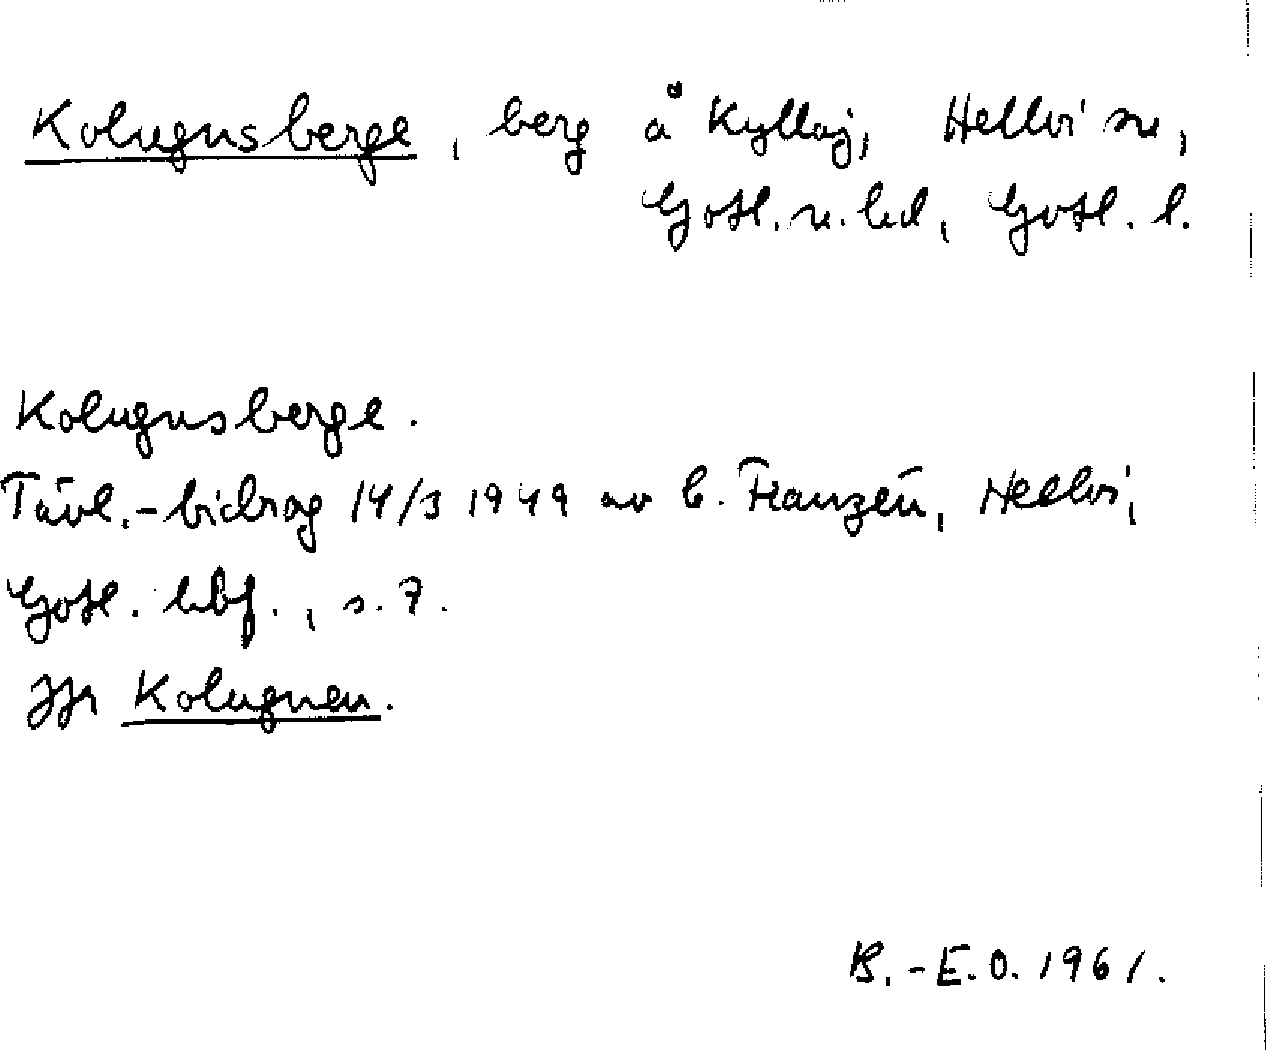 Kolugnsberge, berg å Kyllaj, Hellvi sn,
Gotl. n. hd, Gotl. l.
Kolugnsberge.
Tävl.-bidrag 14/3 1949 av b. Franzén, Hellvi,
Gotl. hbf., s. 7.
Jfr Kolugnen.
B.-E.O. 1961.